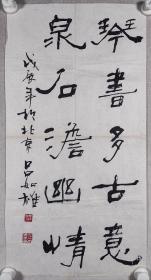 琴書多古意
泉石澹幽情
戊辰年於北京呂如雄